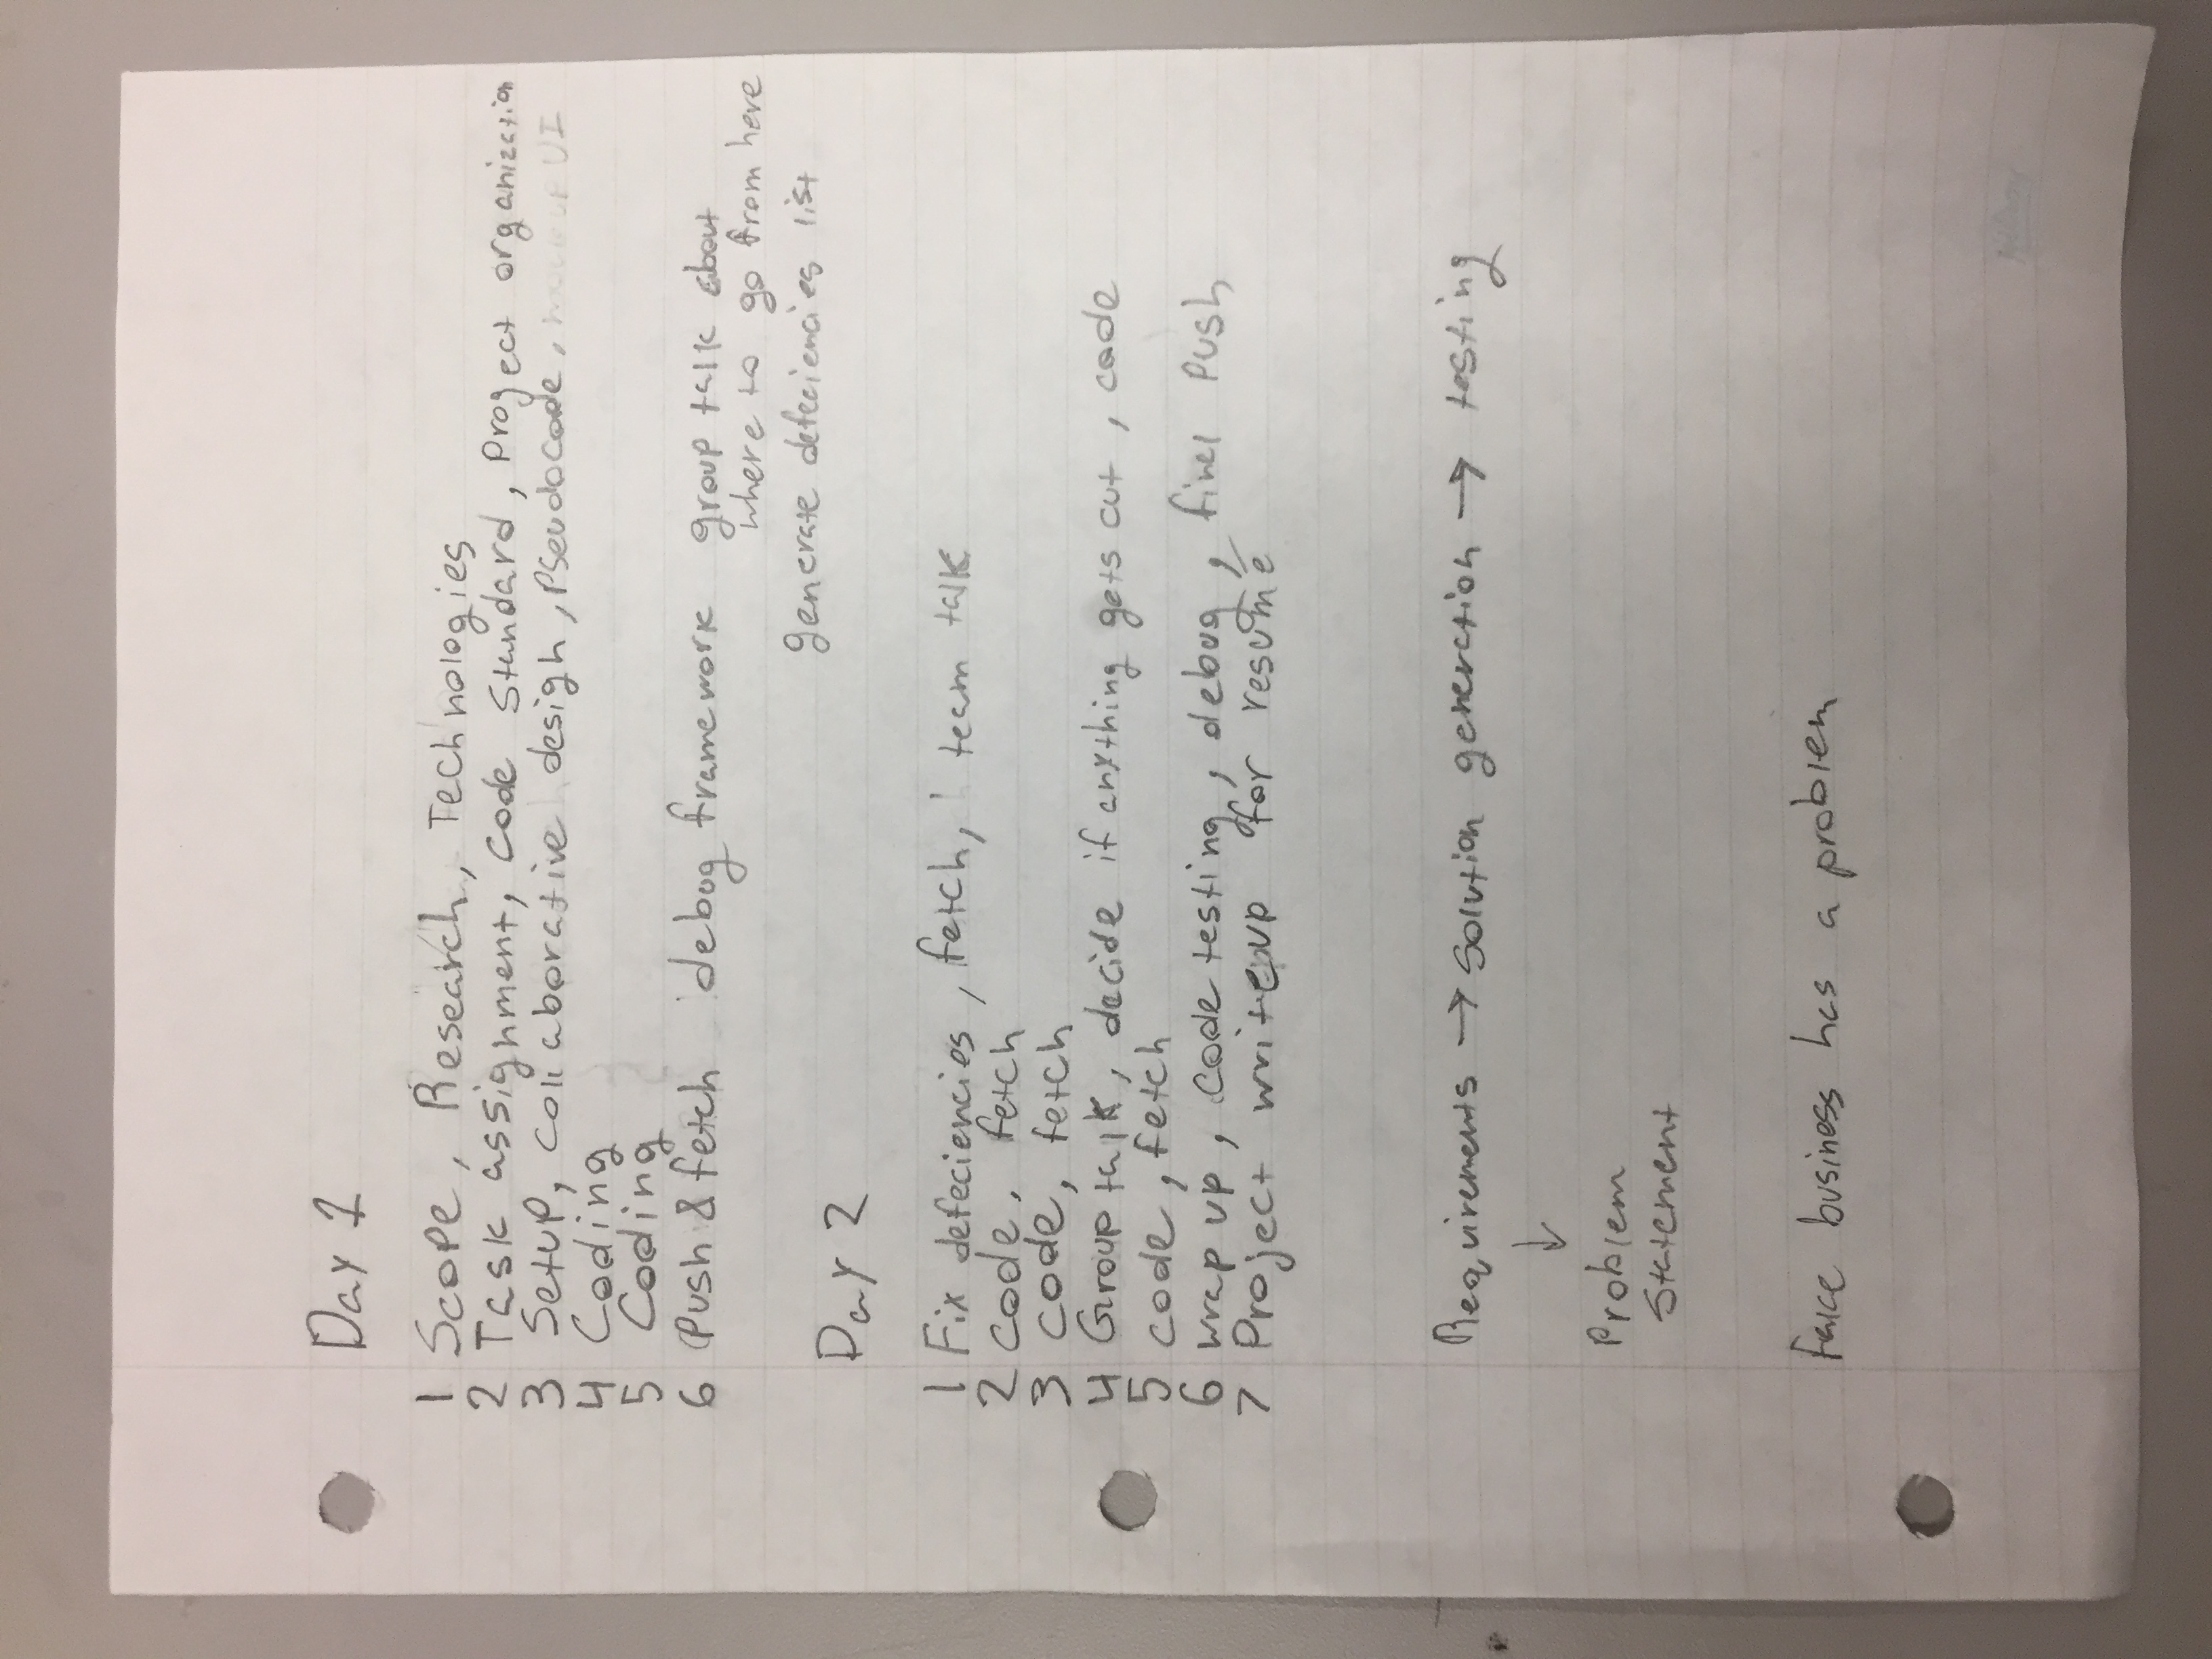 Day 1
1 Scope, Research, Technologies
2 Task assignment, Code Standard, Project organization
3 Setup, collaborative design, Pseudocode, mockup UI
4 Coding
5 Coding
6 Push & fetch debug framework group talk about
where to go from here
generate defeciencies list
Day 2
1 Fix defeciencies, fetch, team talk
2 code, fetch
3 code, fetch
4 Group talk, decide if anything gets cut, code
5 code, fetch
6 wrap up, code testing, debug, final Push
7 Project write up for resumé
Requirements → Solution generation → testing
↓
Problem
Statement
business has a problem